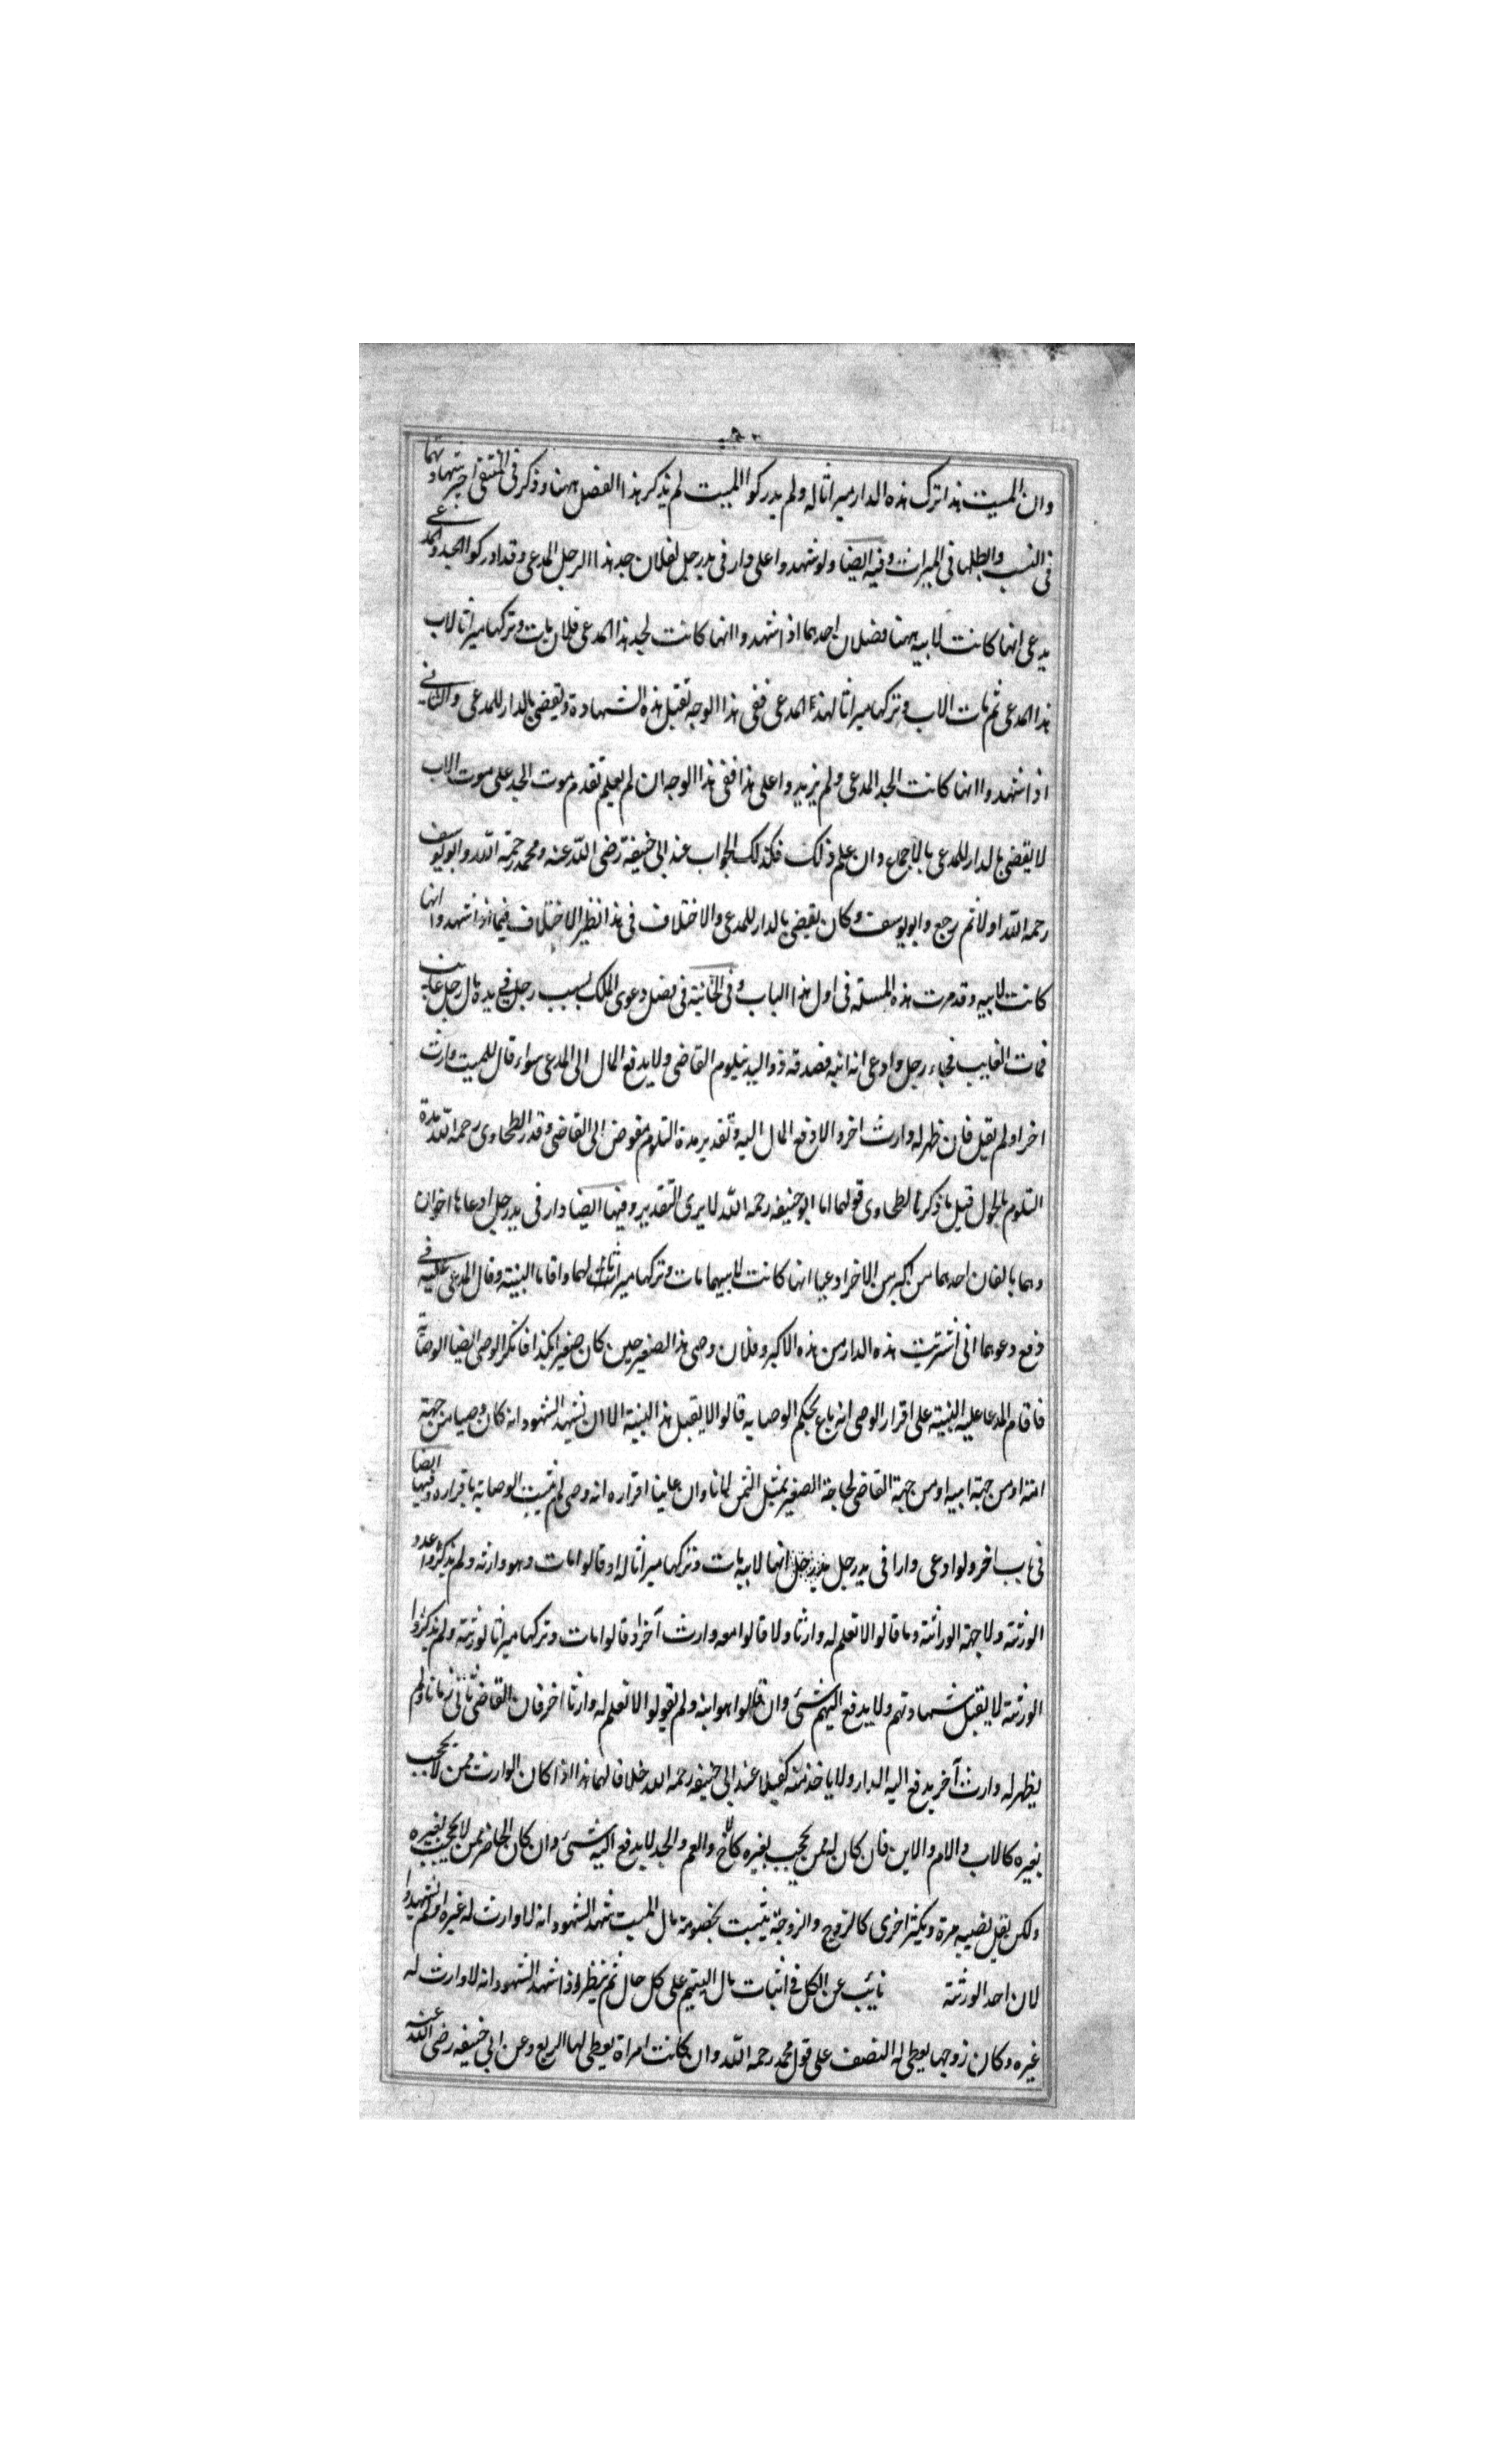 وان الميت هذا ترك هذه الدار ميراثا له ولم يدركوا الميت لم يذكر هذا الفصل ههنا وذكر فى المنتقى اجيز شهادتهما
فى النسب وابطلها فى الميراث وفيه ايضا ولو شهدوا على دار فى يد رجل لفلان جد هذا الرجل المدعى وقد ادركوا الجد والمدعى
يدعى انها كانت لابيه ههنا فصلان احدهما اذا شهدوا انها كانت لجد هذا المدعى فلان مات وتركها ميراثا لاب
هذا المدعى ثم مات الاب وتركها ميراثا لهذا المدعى ففى هذا الوجه تقبل هذه الشهادة ويقضى بالدار للمدعى والثانى
اذا شهدوا انها كانت الجد المدعى ولم يزيدوا على هذا ففى هذا الوجه ان لم يعلم تقدم موت الجد على موت الاب
لا يقضى بالدار للمدعى بالاجماع وان علم ذلك فكذلك الجواب عند ابى حنيفة رضى الله عنه ومحمد رحمة الله وابو يوسف
رحمه الله اولا ثم رجع وابو يوسف وكان يقضى بالدار للمدعى والاختلاف فى هذا نظير الاختلاف فيما اذا شهدوا انها
كانت لابيه وقد مرت هذه المسئلة فى اول هذا الباب وفى الخانية فى فصل دعوى الملك بسبب رجل فى يده مال رجل غايب
فمات الغايب فجاء رجل وادعى انه ابنه فصدقه ذو اليد يتلوم القاضى ولا يدفع المال الى المدعى سواء قال للميت وارث
اخر او لم يقل فان ظهر له وارث اخر والا دفع المال اليه وتقدير مدة التلوم مفوض الى القاضى وقدر الطحاوى رحمه الله مدة
التلوم بالحول قيل ما ذكر الطحاوى قولهما اما ابو حنيفه رحمه الله لا يرى التقدير وفيها ايضا دار فى يد رجل ادعاها اخوان
وهما بالغان احدهما من اكبر من الاخر ادعيا انها كانت لابيهما مات وتركها ميراثا لهما واقاما البينة وقال المدعى عليه فى
دفع دعوهما انى اشتريت هذه الدار من هذه الاكبر وفلان وصى هذا الصغير حين كان صغيرا بكذا فانكر الوصى ايضا الوصاية
فاقام المدعا عليه البينة على اقرار الوصى انه باع بحكم الوصايه قالوا لا يقبل هذا البينة الا ان تشهد الشهود انه كان وصيا من جهة
امه او من جهة ابيه او من جهة القاضى لحاجة الصغير بمثل الثمن وان عاينا اقراره انه وصى لم تثبت الوصاية باقراره وفيها ايضا
فى باب اخر ولو ادعى دارا فى يد رجل انها لابيه مات وتركها ميراثا له او قالوا مات وهو وارثه ولم يذكروا عدد
الورثة ولا جهة الوراثة وما قالوا لا نعلم له وارثا ولا قالوا معه وارث آخر او قالوا مات وتركها ميراثا لورثته ولم يذكروا
الورثة لا يقبل شهادتهم ولا يدفع اليهم شئ وان قالوا هو ابنه ولم يقولوا لا نعلم له وارثا اخر فان القاضى تانى زمانا ولم
يظهر له وارث آخر يدفع اليه الدار ولا ياخذ منه كفيلا عند ابى حنيفه رحمه الله خلافا لهما هذا اذا كان الوارث ممن لا يحجب
بغيره كالاب والام والابن فان كان له ممن يحجب بغيره كالاخ والعم والجد لا يدفع اليه شئ وان كان الحاضر ممن لا يحجب بغيره
ولكن يقل نصيبه مرة ويكثر اخرى كالزوج والزوجة يثبت بخصومة مال الميت شهد الشهود انه لا وارث له غيره او لم يشهدوا
لان احد الورثة نائب عن الكل فى اثبات مال اليتيم على كل حال ثم ينظر اذا شهد الشهود انه لا وارث له
غيره وكان زوجها يعطى له النصف على قول محمد رحمه الله وان كانت امراة يعطى لها الربع وعن ابى حنيفه رضى الله عنه